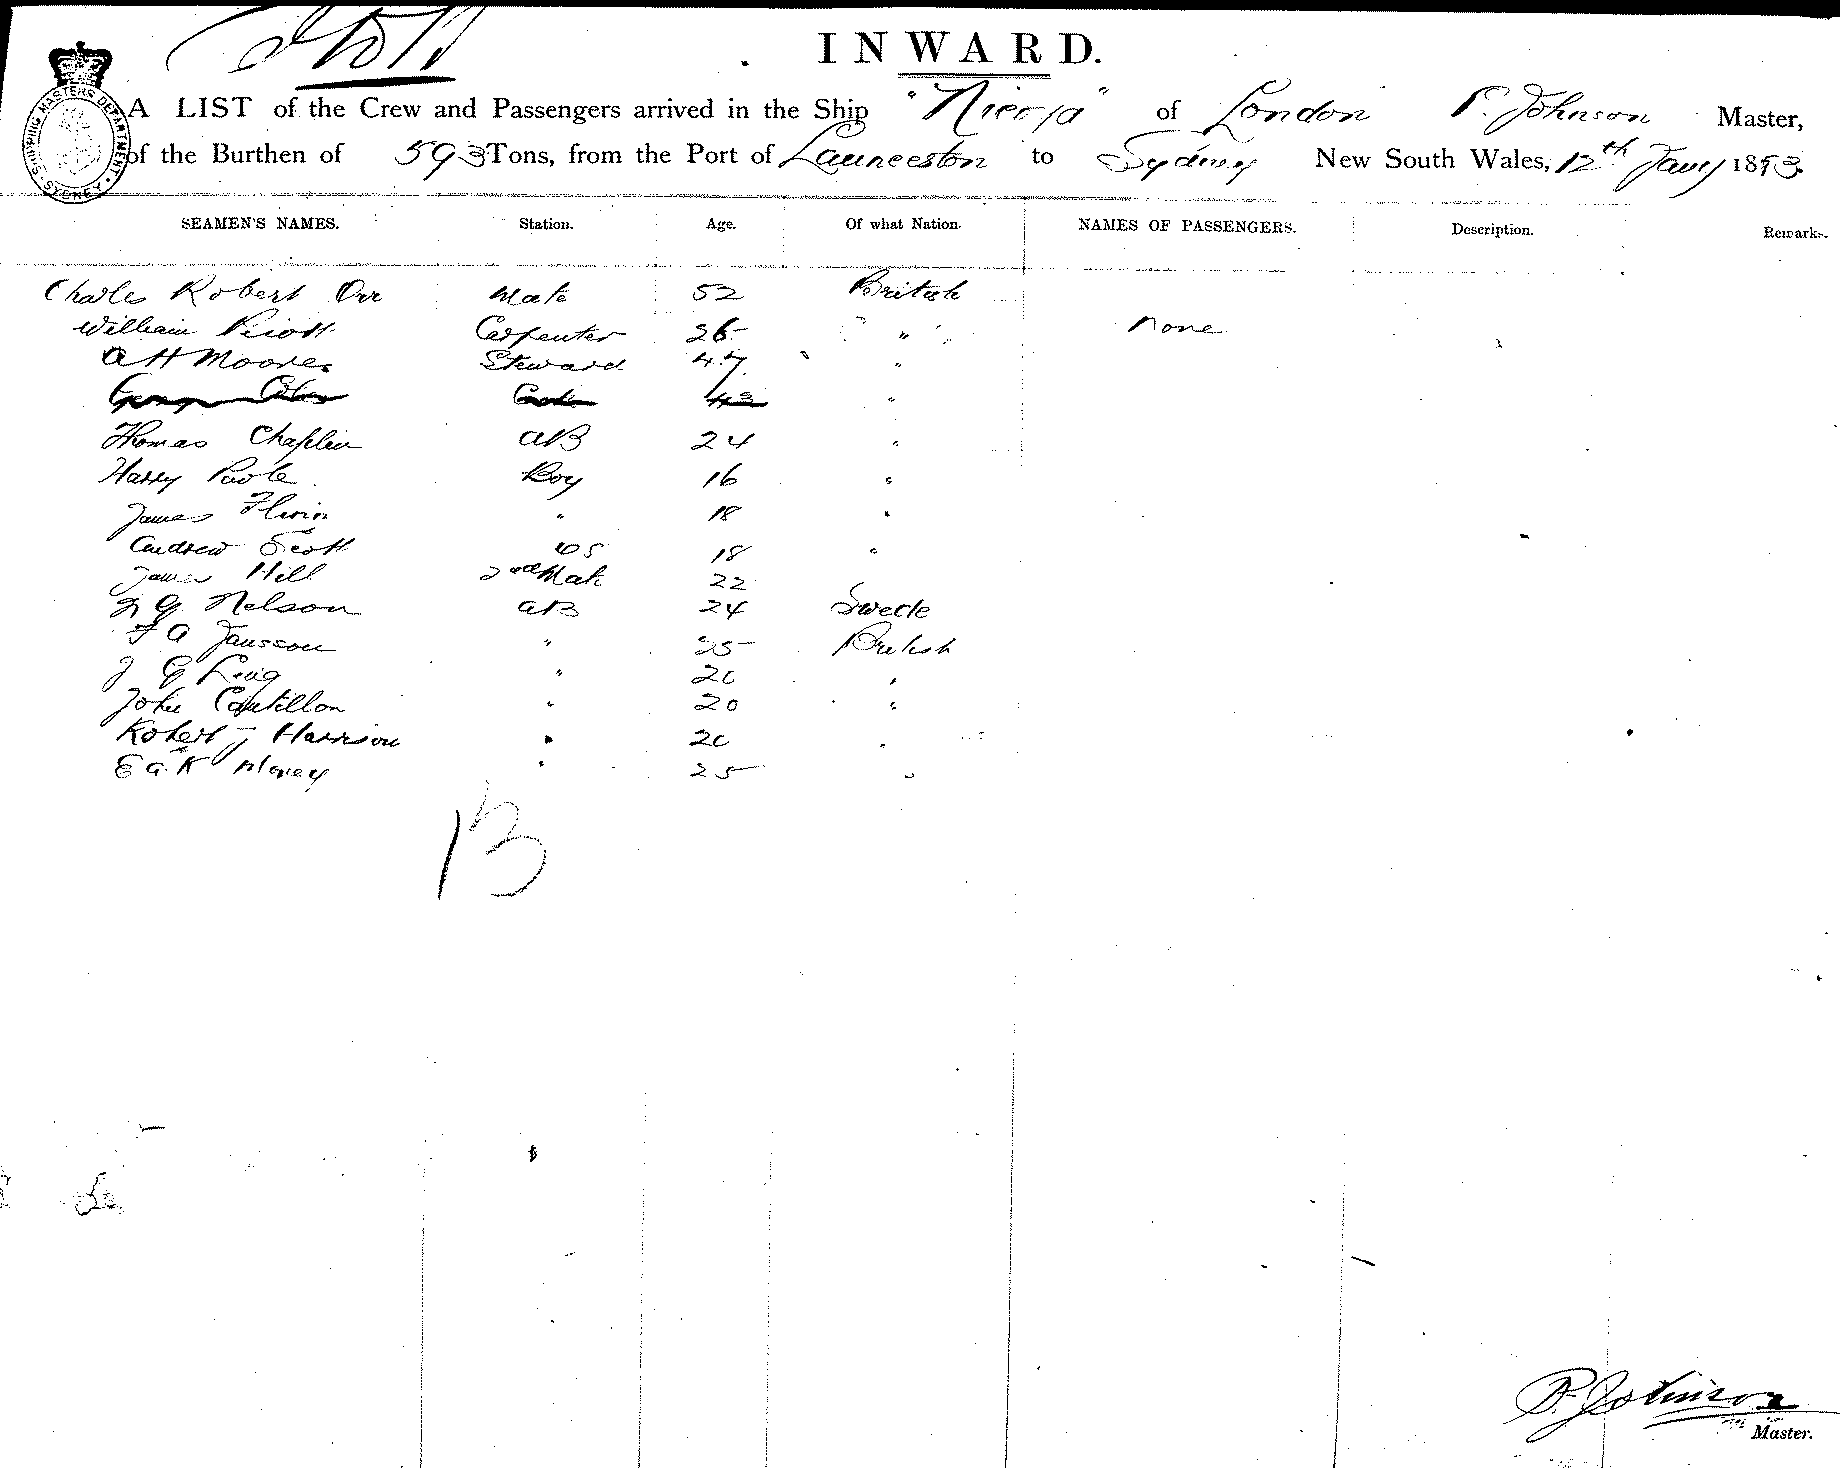 INWARD.
A LIST of the Crew and Passengers arrived in the Ship "Nicoya" of London P. Johnson Master,
of the Burthen of 593 Tons, from the Port of Launceston to Sydney New South Wales, 12th Jany 1893.
SHIPPING MASTERS DEPARTMENT · SYDNEY ·
SEAMEN'S NAMES. Station. Age. Of what Nation. NAMES OF PASSENGERS. Description. Remarks.
Charles Robert Orr Mate 52 British
William Carpenter 26 " none
A H Moores Steward 47 "
Cook 43 "
Thomas Chaplin AB 24 "
Harry Boy 16 "
James " 18 "
Andrew Scott OS 18 "
James Hill 2nd Mate 22
G Nelson AB 24 Swede
F A Jansson " 25 British
J G King " 20 "
John Cantillon " 20 "
Robert J Harrison " 20 "
E G K Money " 25 "
13
P. Johnson
Master.